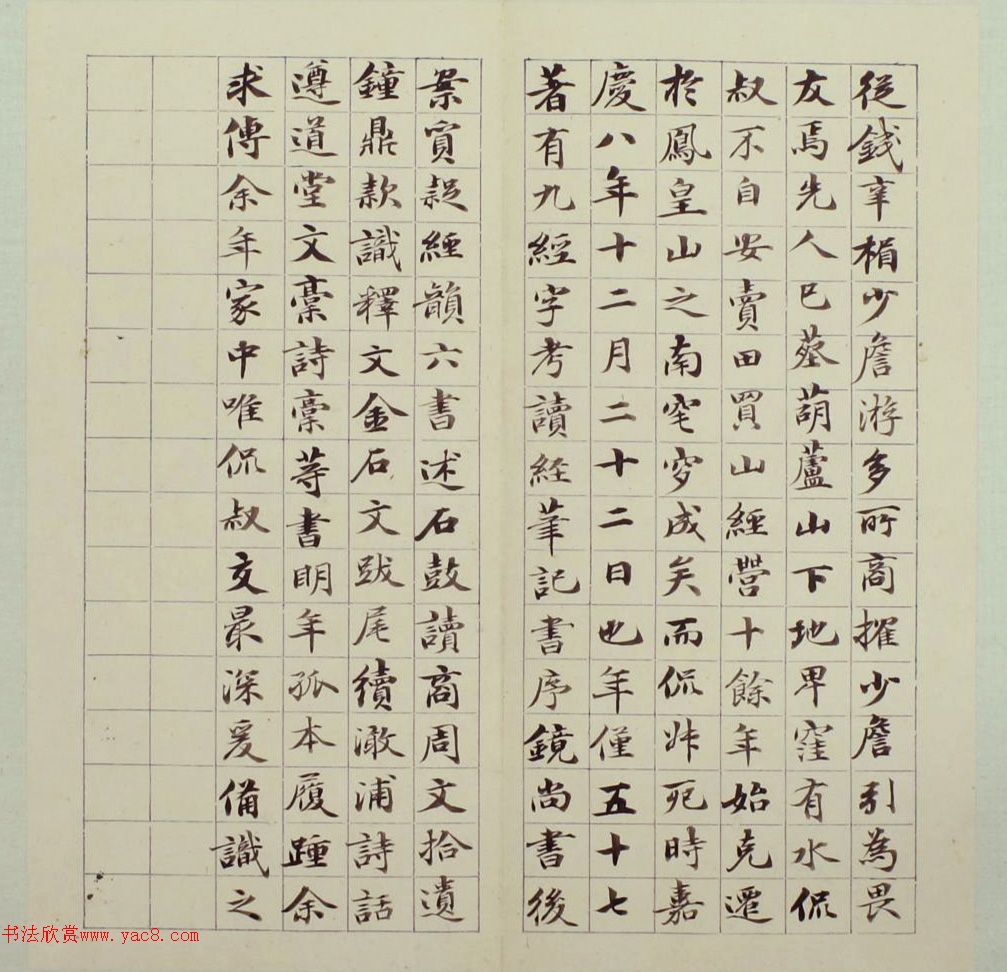 從錢辛楣少詹游多所商搉少詹引為畏
友焉先人已葬葫蘆山下地卑窪有水侃
叔不自安賣田買山經營十餘年始克遷
於鳳皇山之南窀穸成矣而侃叔死時嘉
慶八年十二月二十二日也年僅五十七
著有九經字考讀經筆記書序鏡尚書後
案質疑經韻六書述石鼓讀商周文拾遺
鐘鼎款識釋文金石文跋尾續澉浦詩話
遵道堂文稾詩稾等書明年孤本履踵余
求傳余年家中唯侃叔交最深爰備識之
书法欣赏www.yac8.com